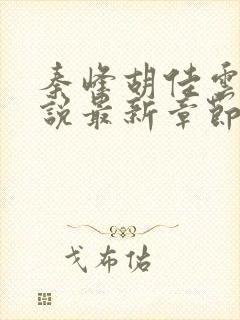 秦峰胡佳雲
說最新章節
戈布佑